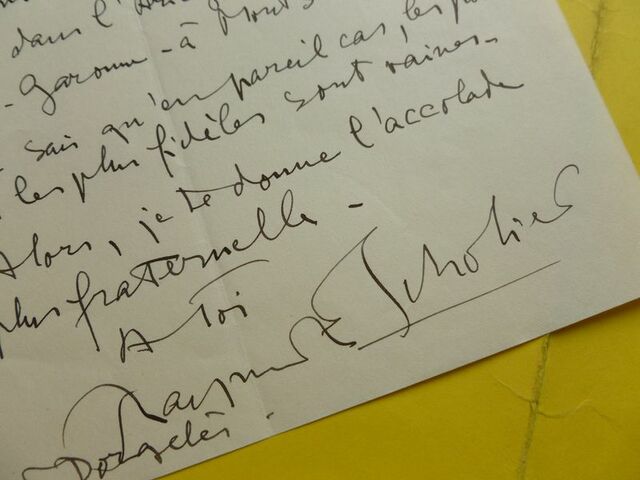 dans l'
-Garonne - à Mont
sais qu'en pareil cas, les
les plus fidèles sont vaines -
Alors, je te donne l'accolade
plus fraternelle -
A toi
Raymond Escholier
Dorgelès -